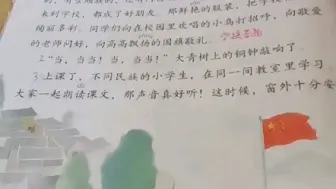 来到学校，都成了好朋友。那鲜艳的服装，把学校
绚丽多彩。同学们向在校园里欢唱的小鸟打招呼，向敬爱
的老师问好，向高高飘扬的国旗敬礼。
2.“当，当当！当，当当！”大青树上的铜钟敲响了。
3.上课了，不同民族的小学生，在同一间教室里学习
大家一起朗读课文，那声音真好听！这时候，窗外十分安